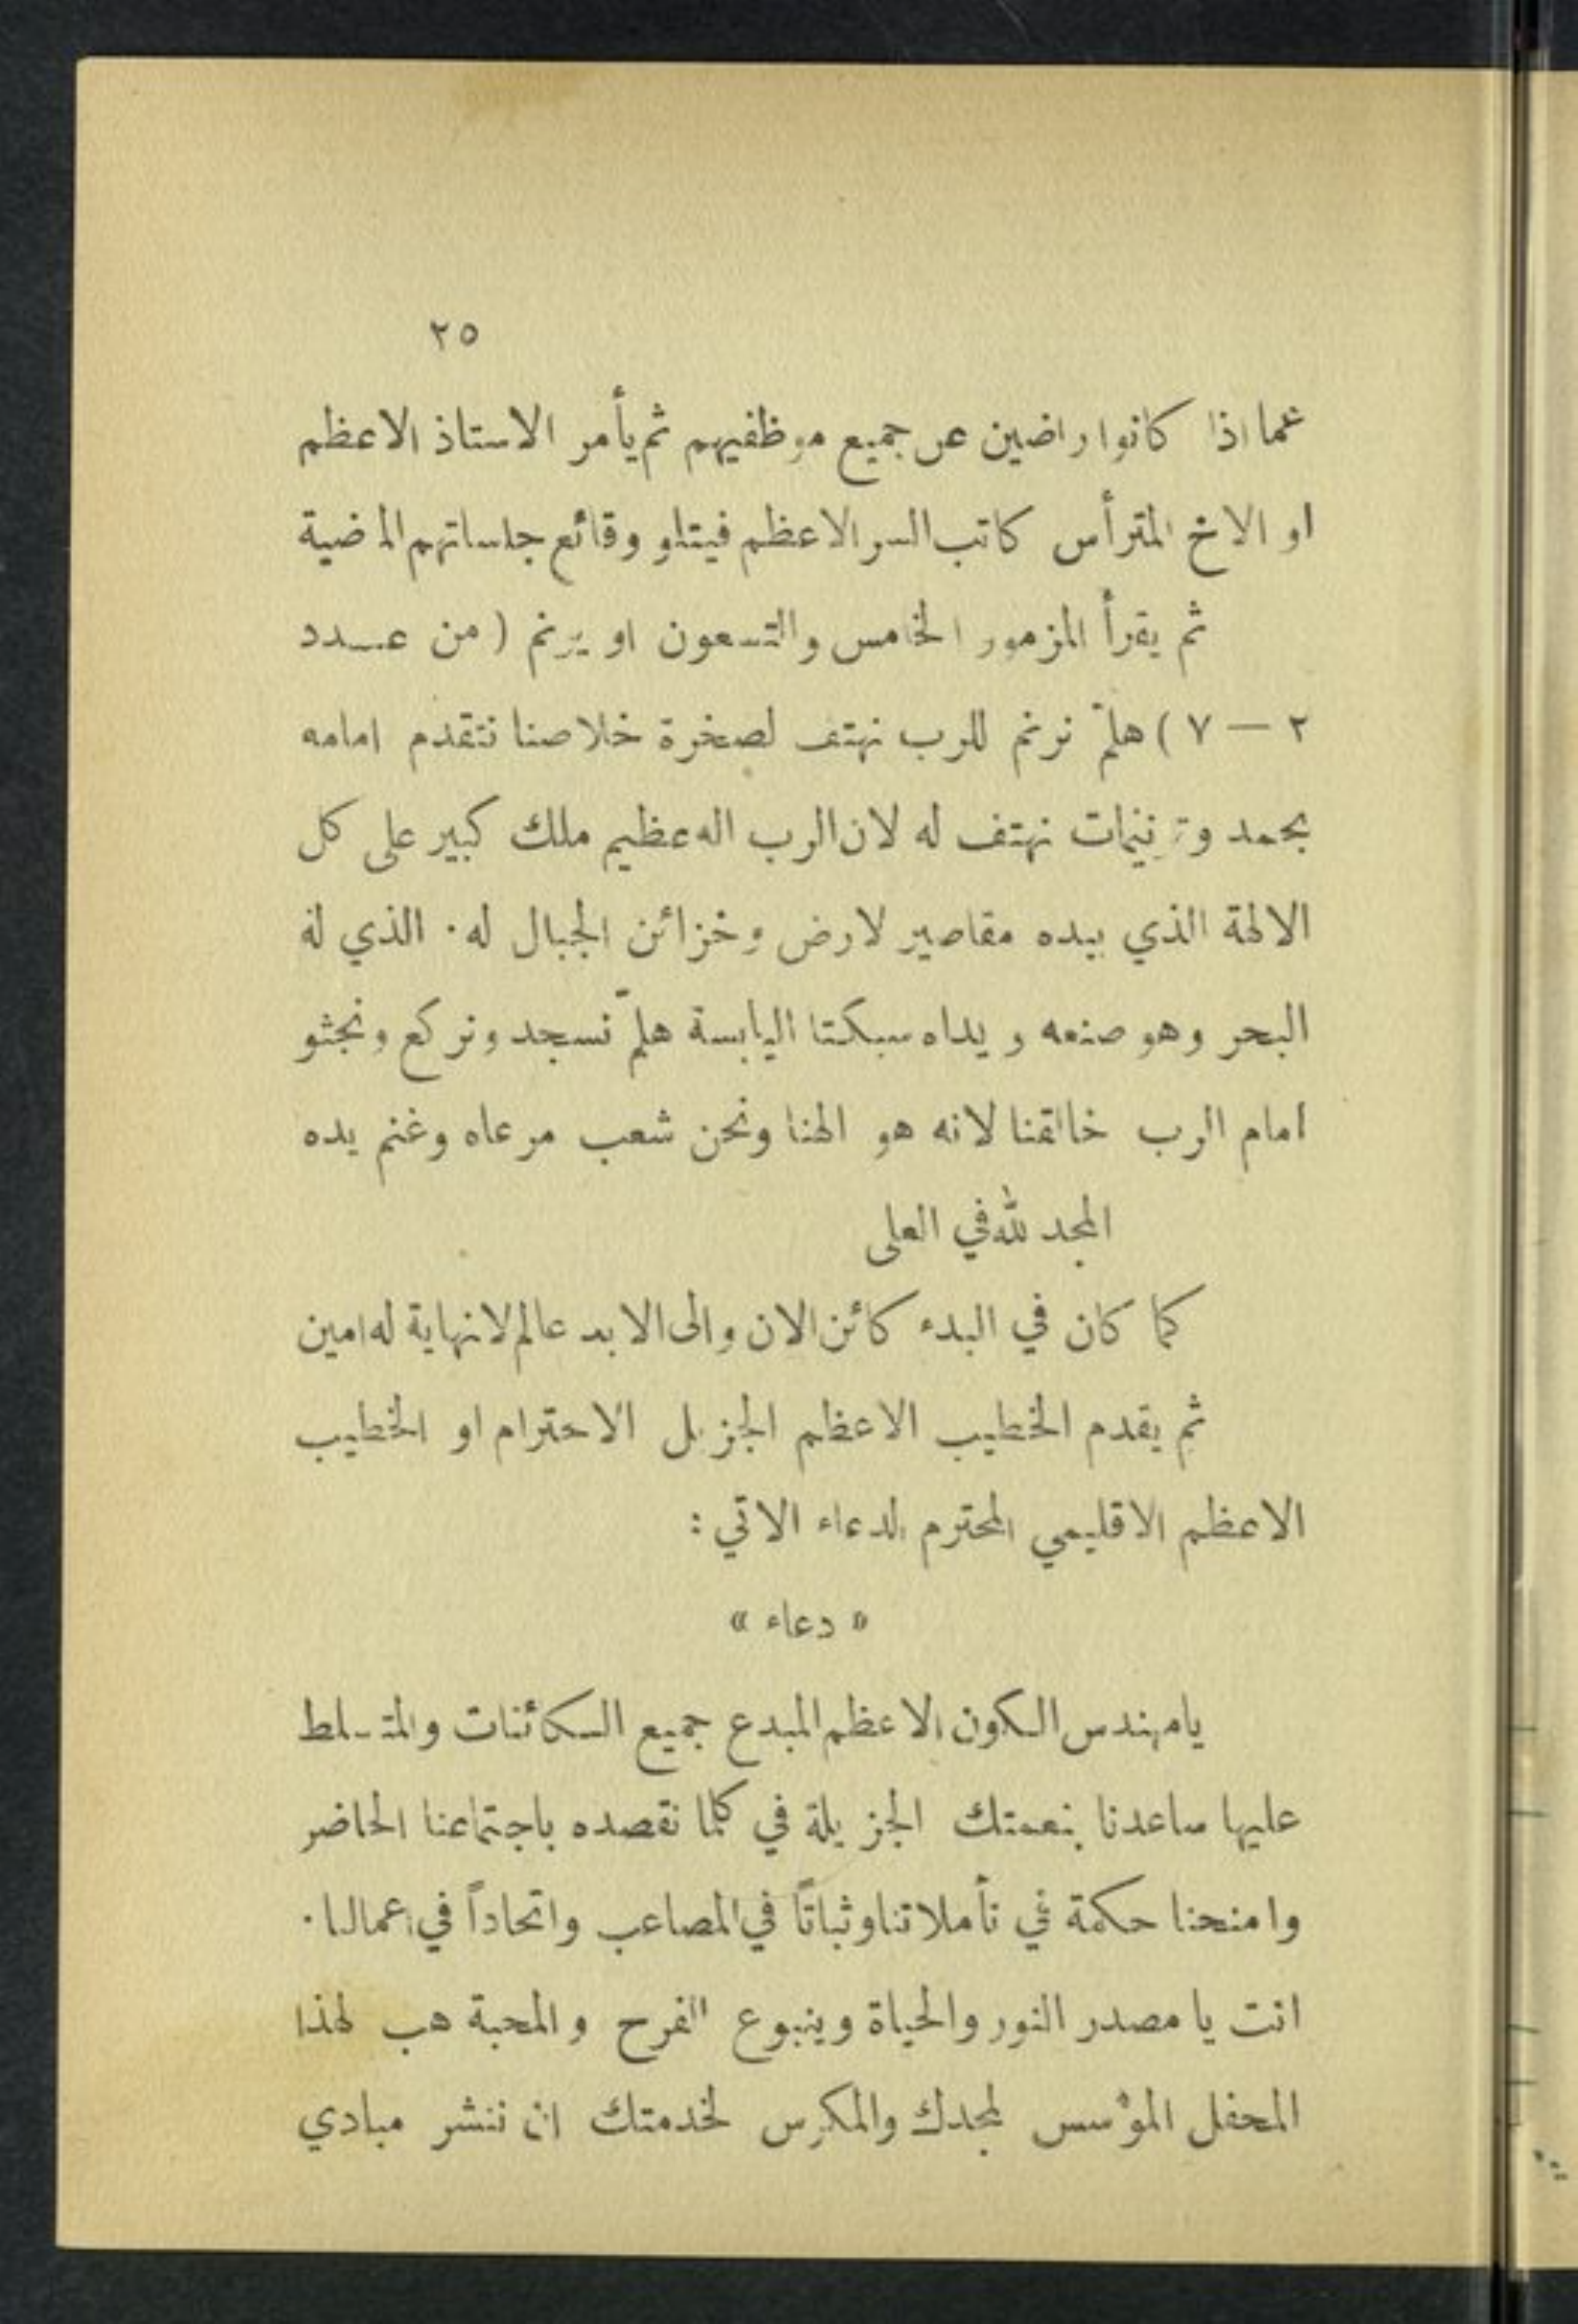 ٢٥
عما اذا كانوا راضين عن جميع موظفيهم ثم يأمر الاستاذ الاعظم
او الاخ المترأس كاتب السر الاعظم فيتلو وقائع جلساتهم الماضية
ثم يقرأ المزمور الخامس والتسعون او يرنم ( من عدد
٢ — ٧ ) هلمّ نرنم للرب نهتف لصخرة خلاصنا نتقدم امامه
بحمد وترنيمات نهتف له لان الرب اله عظيم ملك كبير على كل
الالهة الذي بيده مقاصير لارض وخزائن الجبال له . الذي له
البحر وهو صنعه ويداه سبكتا اليابسة هلمّ نسجد ونركع ونجثو
امام الرب خالقنا لانه هو الهنا ونحن شعب مرعاه وغنم يده
المجد لله في العلى
كما كان في البدء كائن الان والى الابد عالم لا نهاية له امين
ثم يقدم الخطيب الاعظم الجزيل الاحترام او الخطيب
الاعظم الاقليمي المحترم الدعاء الاتي :
« دعاء »
يا مهندس الكون الاعظم المبدع جميع الكائنات والمتسلط
عليها ساعدنا بنعمتك الجزيلة في كلما نقصده باجتماعنا الحاضر
وامنحنا حكمة في تأملاتنا وثباتًا في المصاعب واتحاداً في اعمالنا .
انت يا مصدر النور والحياة وينبوع الفرح والمحبة هب لهذا
المحفل المؤسس لمجدك والمكرس لخدمتك ان ننشر مبادي